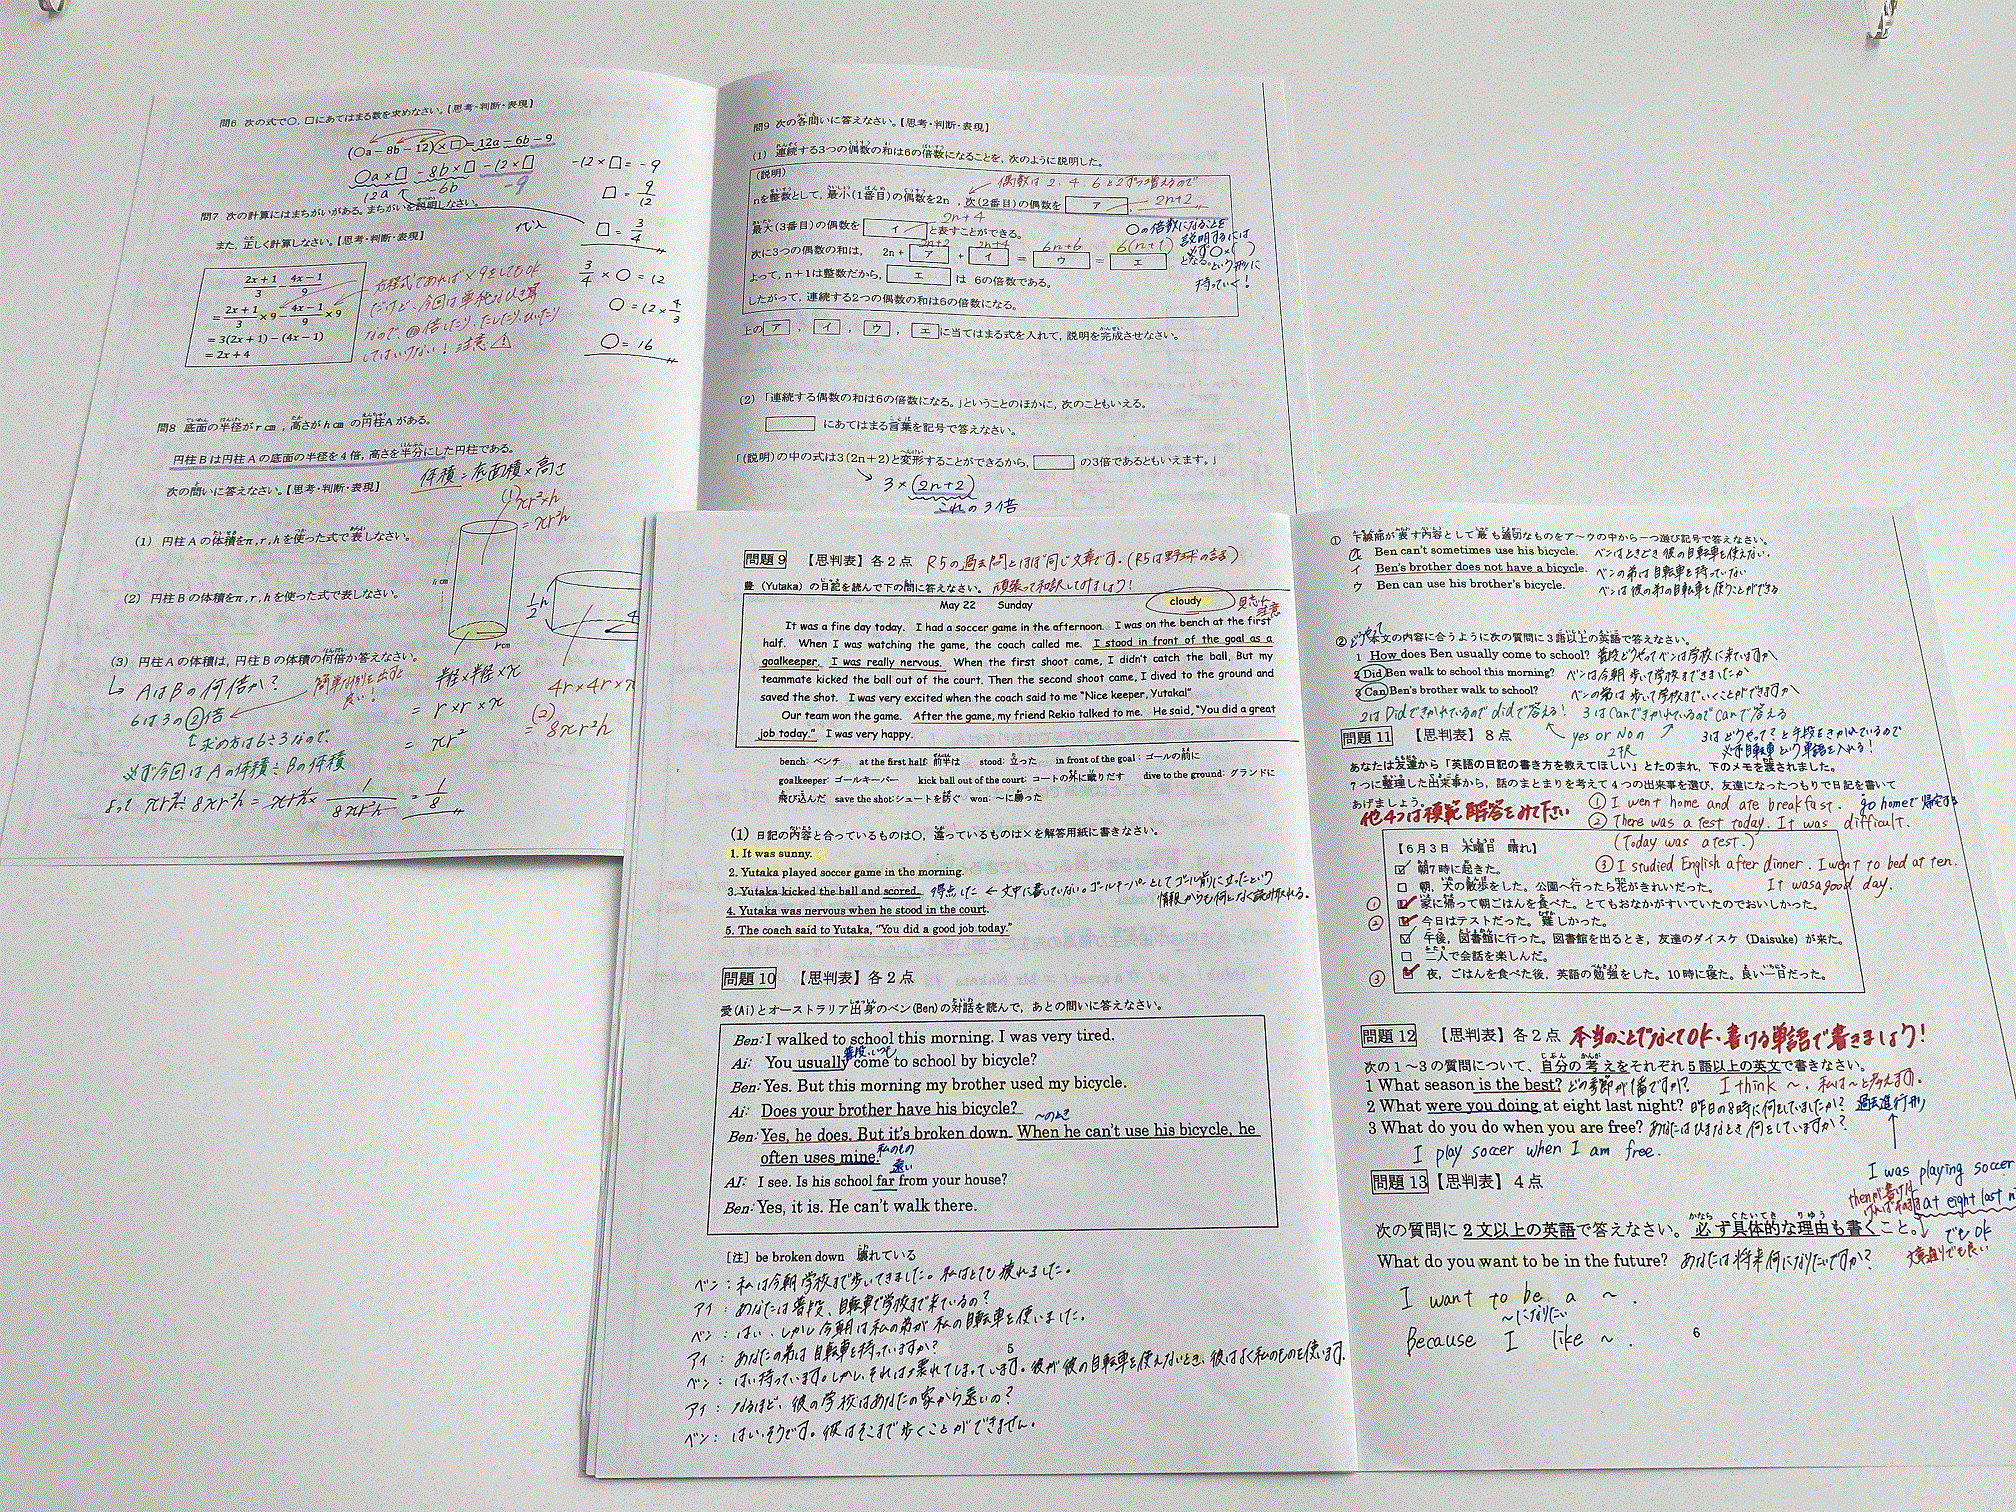 問6 次の式で○，□にあてはまる数を求めなさい。【思考・判断・表現】
(○a－8b－12)×□＝12a－6b－9
○a×□ －8b×□ －12×□
12a －6b －9
－12×□＝－9
□＝9/12
代入
□＝3/4
3/4×○＝12
○＝12×4/3
○＝16
問7 次の計算にはまちがいがある。まちがいを説明しなさい。
また，正しく計算しなさい。【思考・判断・表現】
2x+1/3 － 4x－1/9
＝2x+1/3×9－4x－1/9×9
＝3(2x+1)－(4x－1)
＝2x+4
方程式であれば×9をしてもOK
だけど、今回は単純なひき算
なので、@倍したり、たしたり、ひいたり
してはいけない！注意⚠
問8 底面の半径が r cm ，高さが h cm の円柱Aがある。
円柱Bは円柱Aの底面の半径を4倍，高さを半分にした円柱である。
次の問いに答えなさい。【思考・判断・表現】
体積＝底面積×高さ
(1) 円柱Aの体積をπ, r, h を使った式で表しなさい。
(1) πr²×h
＝πr²h
h cm
r cm
1/2h
(2) 円柱Bの体積をπ, r, h を使った式で表しなさい。
(3) 円柱Aの体積は，円柱Bの体積の何倍か答えなさい。
↳ AはBの何倍か？
簡単な例を出すと
良い！
6は3の②倍
↳求の方は6÷3なので、
必ず今回はAの体積÷Bの体積
よって πr²h÷8πr²h＝πr²h×1/8πr²h＝1/8
半径×半径×π
＝r×r×π
＝πr²
4r×4r×π
(2)
＝8πr²h
問9 次の各問いに答えなさい。【思考・判断・表現】
(1) 連続する3つの偶数の和は6の倍数になることを，次のように説明した。
(説明)
偶数は2、4、6と2ずつ増えるので
nを整数として，最小(1番目)の偶数を2n ，次(2番目)の偶数を ア 2n+2
最大(3番目)の偶数を イ と表すことができる。
2n+4
次に3つの偶数の和は， 2n＋ ア ＋ イ ＝ ウ ＝ エ となる。
2n+2 2n+4 6n+6 6(n+1)
よって，n＋1は整数だから， エ は 6の倍数である。
したがって，連続する2つの偶数の和は6の倍数になる。
○の倍数になることを
説明するには
必ず○×( )
という形に
持っていく！
上の ア ， イ ， ウ ， エ に当てはまる式を入れて，説明を完成させなさい。
(2) 「連続する偶数の和は6の倍数になる。」ということのほかに，次のこともいえる。
□ にあてはまる言葉を記号で答えなさい。
「(説明)の中の式は3(2n＋2)と変形することができるから， □ の3倍であるともいえます。」
3×(2n+2)
これの3倍
問題9 【思判表】各2点 R5の過去問とほぼ同じ文章です。(R5は野球の話)
豊（Yutaka）の日記を読んで下の問に答えなさい。 頑張って和訳してみましょう！
May 22 Sunday cloudy 見忘れ注意
It was a fine day today. I had a soccer game in the afternoon. I was on the bench at the first
half. When I was watching the game, the coach called me. I stood in front of the goal as a
goalkeeper. I was really nervous. When the first shoot came, I didn't catch the ball, But my
teammate kicked the ball out of the court. Then the second shoot came, I dived to the ground and
saved the shot. I was very excited when the coach said to me "Nice keeper, Yutaka!"
Our team won the game. After the game, my friend Rekio talked to me. He said, "You did a great
job today." I was very happy.
bench: ベンチ at the first half: 前半は stood: 立った in front of the goal : ゴールの前に
goalkeeper: ゴールキーパー kick ball out of the court: コートの外に蹴りだす dive to the ground: グランドに
飛び込んだ save the shot:シュートを防ぐ won: ～に勝った
(1) 日記の内容と合っているものは○，違っているものは×を解答用紙に書きなさい。
1. It was sunny.
2. Yutaka played soccer game in the morning.
3. Yutaka kicked the ball and scored. 得点した ← 文中に書いていない。ゴールキーパーとしてゴール前に立ったという
情報からも何となく読み取れる。
4. Yutaka was nervous when he stood in the court.
5. The coach said to Yutaka, "You did a good job today."
問題10 【思判表】各2点
愛(Ai)とオーストラリア出身のベン(Ben)の対話を読んで，あとの問いに答えなさい。
Ben: I walked to school this morning. I was very tired.
普段、いつも
Ai: You usually come to school by bicycle?
Ben: Yes. But this morning my brother used my bicycle.
Ai: Does your brother have his bicycle?
～のとき
Ben: Yes, he does. But it's broken down. When he can't use his bicycle, he
often uses mine. 私のもの
遠い
AI: I see. Is his school far from your house?
Ben: Yes, it is. He can't walk there.
［注］be broken down 壊れている
ベン：私は今朝学校まで歩いてきました。私はとても疲れました。
アイ：あなたは普段、自転車で学校まで来ているの？
ベン：はい、しかし今朝は私の弟が私の自転車を使いました。
アイ：あなたの弟は自転車を持っていますか？
5
ベン：はい持っています。しかし、それは壊れてしまっています。彼が彼の自転車を使えないとき、彼はよく私のものを使います。
アイ：なるほど、彼の学校はあなたの家から遠いの？
ベン：はい、そうです。彼はそこまで歩くことができません。
① 下線部が表す内容として最も適切なものをア～ウの中から一つ選び記号で答えなさい。
ア Ben can't sometimes use his bicycle. ベンはときどき彼の自転車を使えない.
イ Ben's brother does not have a bicycle. ベンの弟は自転車を持っていない
ウ Ben can use his brother's bicycle. ベンは彼の弟の自転車を使うことができる
② 本文の内容に合うように次の質問に3語以上の英語で答えなさい。
どうやって
1 How does Ben usually come to school? 普段どうやってベンは学校に来ていますか
2 Did Ben walk to school this morning? ベンは今朝歩いて学校まできましたか
3 Can Ben's brother walk to school? ベンの弟は歩いて学校までいくことができますか
2はDidできかれているのでdidで答える！ 3はCanできかれているのでCanで答える
yes or Non
2択
問題11 【思判表】8点
3はどうやって？と手段をきかれているので
必ず自転車という単語を入れる！
あなたは友達から「英語の日記の書き方を教えてほしい」とたのまれ，下のメモを渡されました。
7つに整理した出来事から，話のまとまりを考えて4つの出来事を選び，友達になったつもりで日記を書いて
あげましょう。
他4つは模範解答をみて下さい
① I went home and ate breakfast. go homeで帰宅する
② There was a test today. It was difficult.
(Today was a test.)
③ I studied English after dinner. I went to bed at ten.
It was a good day.
【6月3日 木曜日 晴れ】
☑ 朝7時に起きた。
□ 朝，犬の散歩をした。公園へ行ったら花がきれいだった。
① ☑ 家に帰って朝ごはんを食べた。とてもおなかがすいていたのでおいしかった。
② ☑ 今日はテストだった。難しかった。
☑ 午後，図書館に行った。図書館を出るとき，友達のダイスケ（Daisuke）が来た。
□ 二人で会話を楽しんだ。
③ ☑ 夜，ごはんを食べた後，英語の勉強をした。10時に寝た。良い一日だった。
問題12 【思判表】各2点 本当のことでなくてOK・書ける単語で書きましょう！
次の1～3の質問について、自分の考えをそれぞれ5語以上の英文で書きなさい。
1 What season is the best? どの季節が1番ですか？ I think ～. 私は～と考えます。
2 What were you doing at eight last night? 昨日の8時に何をしていましたか？ 過去進行形
3 What do you do when you are free? あなたはひまなとき何をしていますか？
I play soccer when I am free.
I was playing soccer
at eight last ni
でもOK
問題13 【思判表】4点
次の質問に2文以上の英語で答えなさい。必ず具体的な理由も書くこと。
What do you want to be in the future? あなたは将来何になりたいですか？
I want to be a ～.
～になりたい
Because I like ～.
6